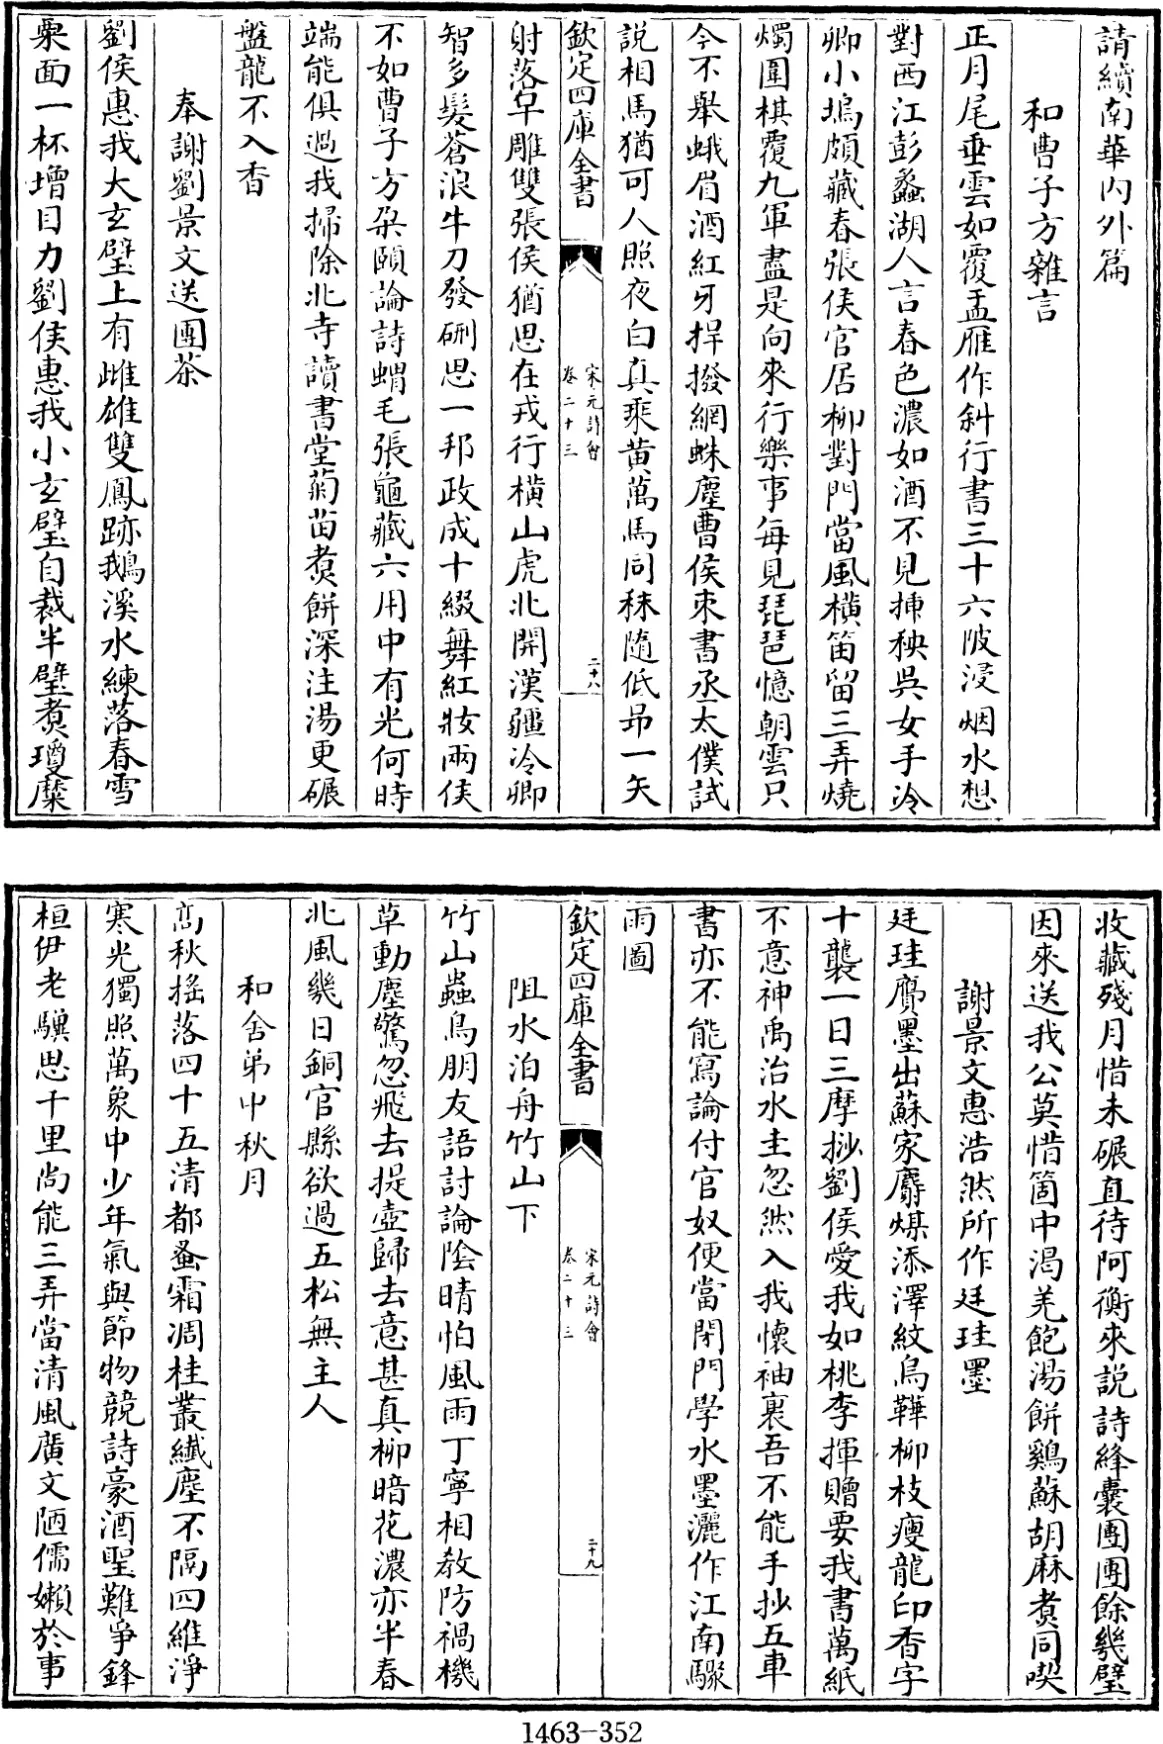 請續南華内外篇
和曹子方雜言
正月尾垂雲如覆盂雁作斜行書三十六陂浸烟水想
對西江彭蠡湖人言春色濃如酒不見揷秧吳女手冷
卿小塢頗藏春張侯官居柳對門當風橫笛留三弄燒
燭圍棋覆九軍盡是向來行樂事每見琵琶憶朝雲只
今不舉蛾眉酒紅牙捍撥網蛛塵曹侯束書丞太僕試
説相馬猶可人照夜白真乘黄萬馬同秣隨低昻一矢
欽定四庫全書
宋元詩會
卷二十三
二十八
射落皁雕雙張侯猶思在戎行橫山虎北開漢疆冷卿
智多髮蒼浪牛刀發硎思一邦政成十綴舞紅妝兩侯
不如曹子方朶頤論詩蝟毛張龜藏六用中有光何時
端能俱過我掃除北寺讀書堂菊苗煑餅深注湯更碾
盤龍不入香
奉謝劉景文送團茶
劉侯惠我大玄璧上有雌雄雙鳳跡鵝溪水練落春雪
粟面一杯增目力劉侯惠我小玄璧自裁半璧煑瓊糜
收藏殘月惜未碾直待阿衡來説詩絳囊團團餘幾璧
因來送我公莫惜箇中渴羌飽湯餅鷄蘇胡麻煑同喫
謝景文惠浩然所作廷珪墨
廷珪贋墨出蘇家麝煤添澤紋烏鞾柳枝瘦龍印香字
十襲一日三摩挲劉侯愛我如桃李揮贈要我書萬紙
不意神禹治水圭忽然入我懷袖裏吾不能手抄五車
書亦不能寫論付官奴便當閉門學水墨灑作江南驟
雨圖
欽定四庫全書
宋元詩會
卷二十三
二十九
阻水泊舟竹山下
竹山蟲鳥朋友語討論陰晴怕風雨丁寧相教防禍機
草動塵驚忽飛去提壺歸去意甚真柳暗花濃亦半春
北風幾日銅官縣欲過五松無主人
和舍弟中秋月
高秋摇落四十五清都蚤霜凋桂叢纎塵不隔四維淨
寒光獨照萬象中少年氣與節物競詩豪酒聖難爭鋒
桓伊老驥思千里尚能三弄當清風廣文陋儒嬾於事
1463-352